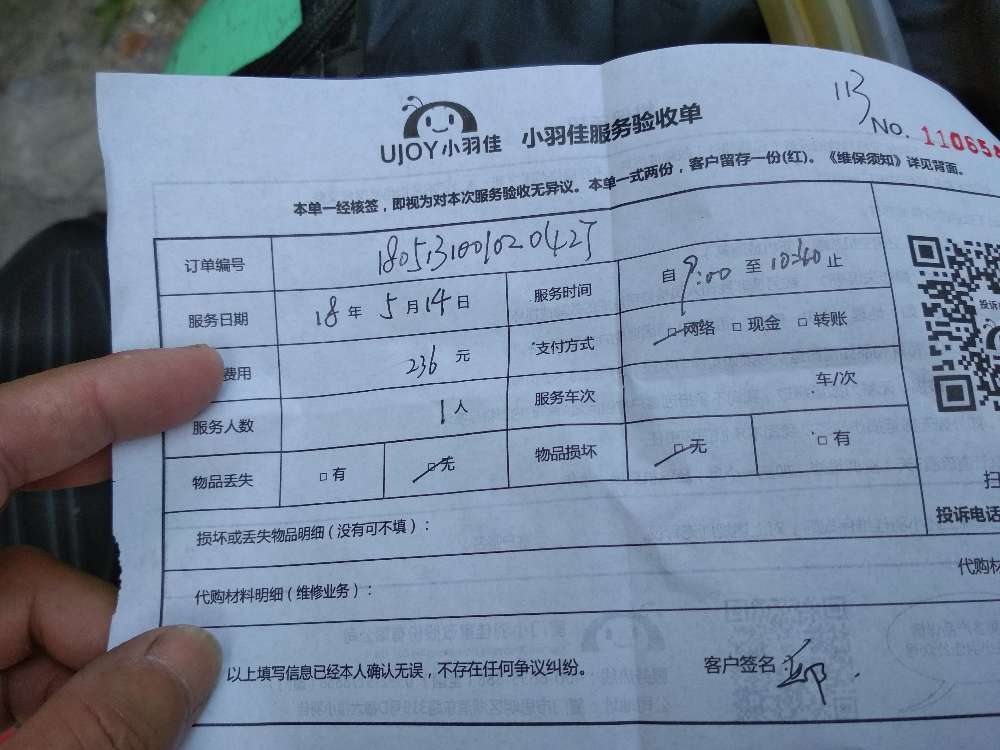 113
UJOY小羽佳 小羽佳服务验收单
No. 11065
本单一经核签，即视为对本次服务验收无异议。本单一式两份，客户留存一份(红)。《维保须知》详见背面。
订单编号
服务日期 18 年 5 月 14 日 服务时间 自 9:00 至 止
费用 236 元 支付方式 □网络 □现金 □转账
服务人数 1 人 服务车次 车/次
物品丢失 □有 □无 物品损坏 □无 □有
损坏或丢失物品明细（没有可不填）：
投诉电话
代购材
代购材料明细（维修业务）：
以上填写信息已经本人确认无误，不存在任何争议纠纷。 客户签名：